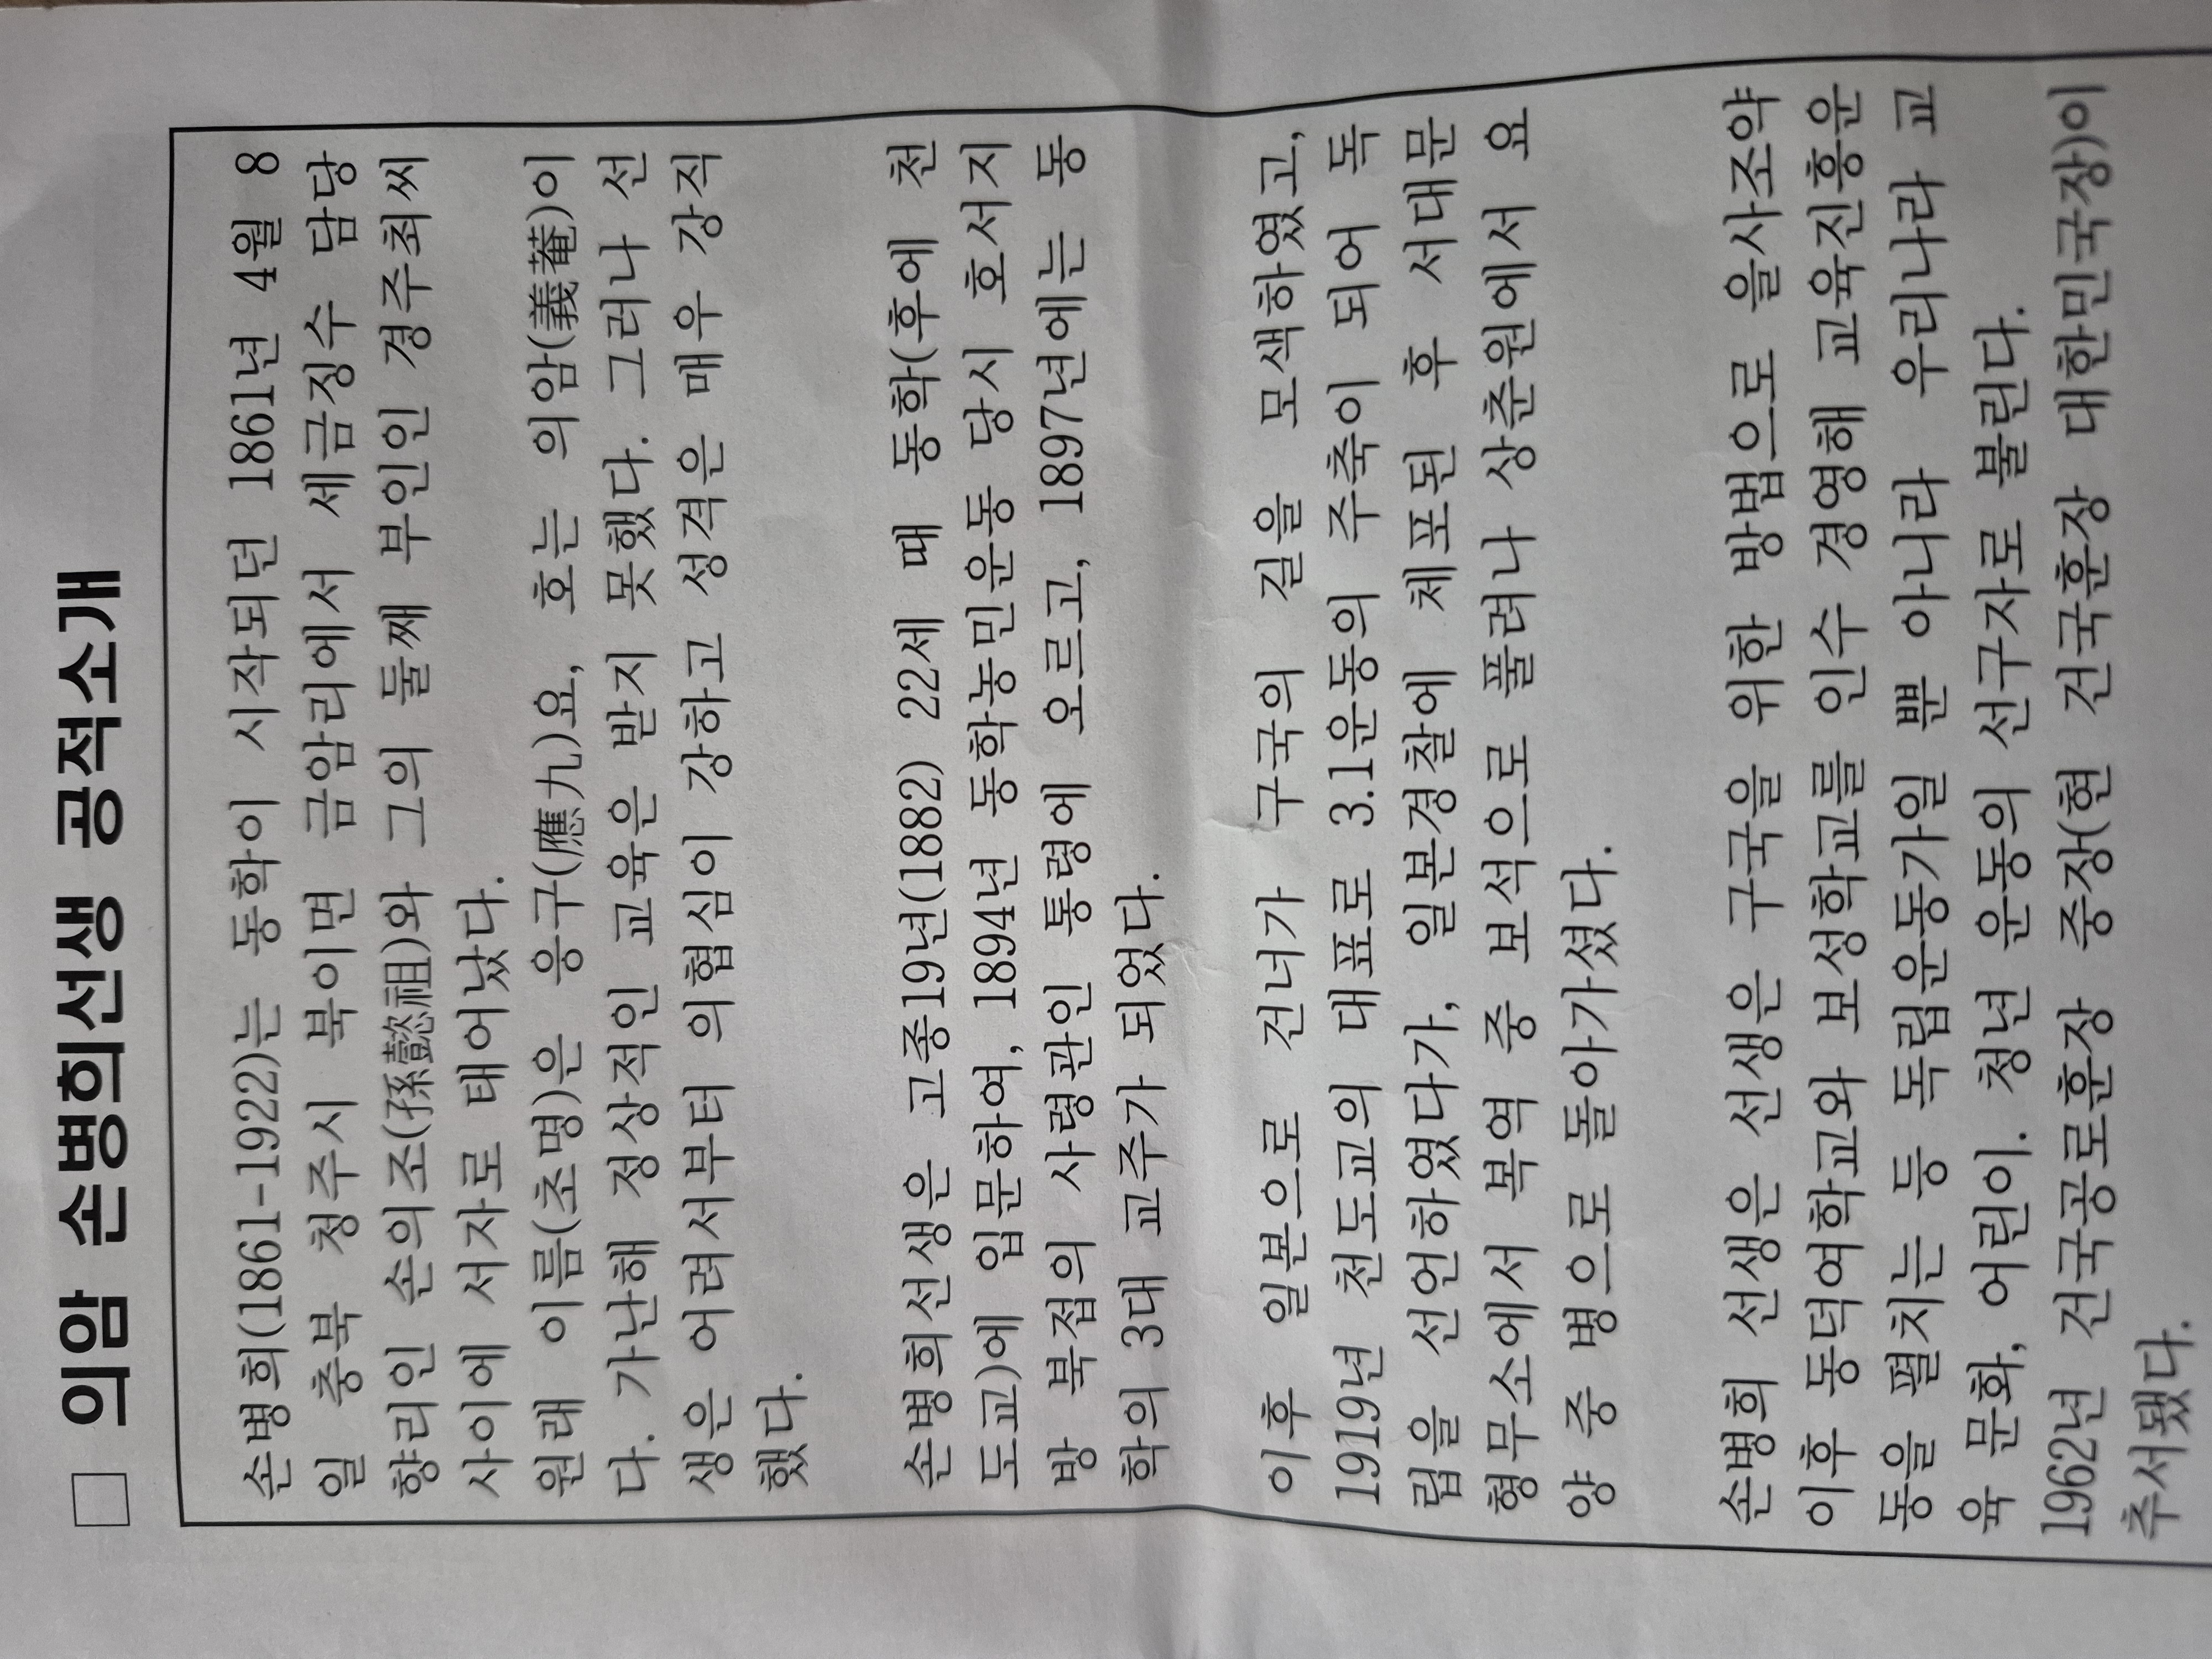 □ 의암 손병희선생 공적소개
손병희(1861-1922)는 동학이 시작되던 1861년 4월 8
일 충북 청주시 북이면 금암리에서 세금징수 담당
향리인 손의조(孫懿祖)와 그의 둘째 부인인 경주최씨
사이에 서자로 태어났다.
원래 이름(초명)은 응구(應九)요, 호는 의암(義菴)이
다. 가난해 정상적인 교육은 받지 못했다. 그러나 선
생은 어려서부터 의협심이 강하고 성격은 매우 강직
했다.
손병희선생은 고종19년(1882) 22세 때 동학(후에 천
도교)에 입문하여, 1894년 동학농민운동 당시 호서지
방 북접의 사령관인 통령에 오르고, 1897년에는 동
학의 3대 교주가 되었다.
이후 일본으로 건너가 구국의 길을 모색하였고,
1919년 천도교의 대표로 3.1운동의 주축이 되어 독
립을 선언하였다가, 일본경찰에 체포된 후 서대문
형무소에서 복역 중 보석으로 풀려나 상춘원에서 요
양 중 병으로 돌아가셨다.
손병희 선생은 선생은 구국을 위한 방법으로 을사조약
이후 동덕여학교와 보성학교를 인수 경영해 교육진흥운
동을 펼치는 등 독립운동가일 뿐 아니라 우리나라 교
육 문화, 어린이. 청년 운동의 선구자로 불린다.
1962년 건국공로훈장 중장(현 건국훈장 대한민국장)이
추서됐다.